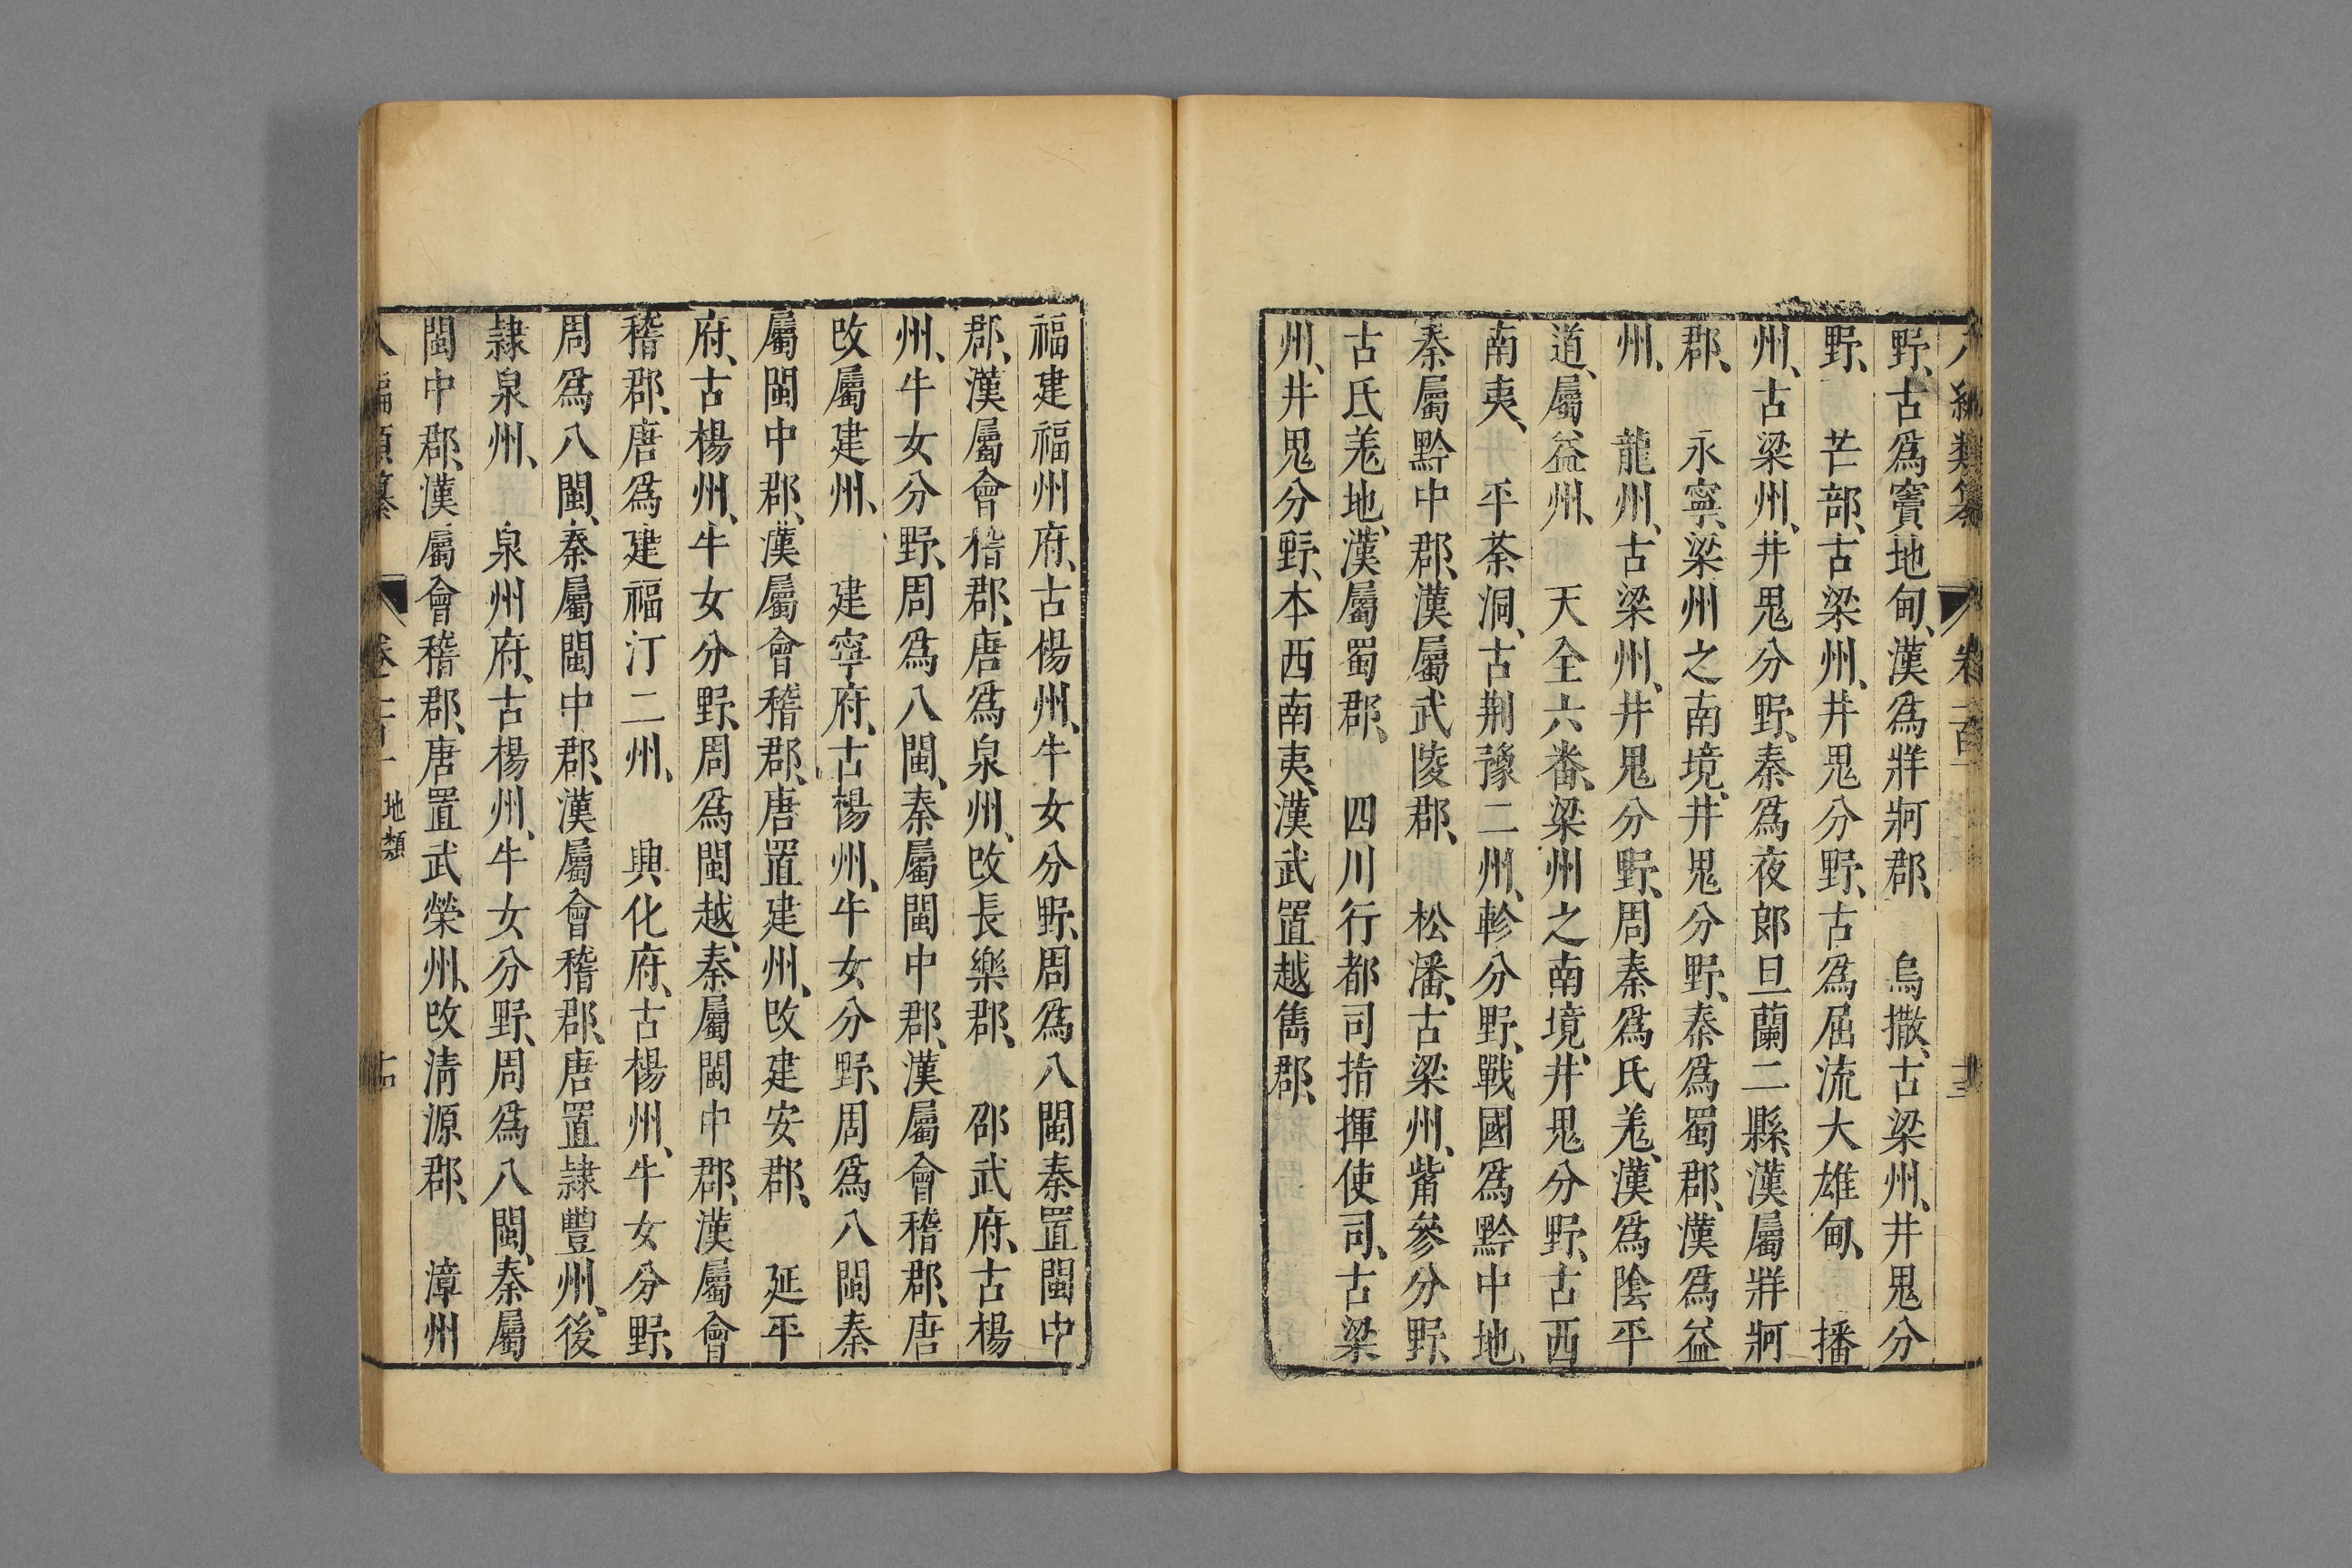 八編類纂 卷二百一 十三
野、古爲竇地甸、漢爲牂牁郡、 烏撒、古梁州、井鬼分
野、 芒部、古梁州、井鬼分野、古爲屈流大雄甸、 播
州、古梁州、井鬼分野、秦爲夜郎旦蘭二縣、漢屬牂牁
郡、 永寧、梁州之南境、井鬼分野、秦爲蜀郡、漢爲益
州、 龍州、古梁州、井鬼分野、周秦爲氐羗、漢爲陰平
道、屬益州、 天全六番、梁州之南境、井鬼分野、古西
南夷、 平茶洞、古荆豫二州、軫分野、戰國爲黔中地、
秦屬黔中郡、漢屬武陵郡、 松潘、古梁州、觜參分野、
古氐羗地、漢屬蜀郡、 四川行都司指揮使司、古梁
州、井鬼分野、本西南夷、漢武置越雋郡、
福建福州府、古楊州、牛女分野、周爲八閩秦置閩中
郡、漢屬會稽郡、唐爲泉州、改長樂郡、 邵武府、古楊
州、牛女分野、周爲八閩、秦屬閩中郡、漢屬會稽郡、唐
改屬建州、 建寧府、古楊州、牛女分野、周爲八閩秦
屬閩中郡、漢屬會稽郡、唐置建州、改建安郡、 延平
府、古楊州、牛女分野、周爲閩越、秦屬閩中郡、漢屬會
稽郡、唐爲建福汀二州、 興化府、古楊州、牛女分野、
周爲八閩、秦屬閩中郡、漢屬會稽郡、唐置隷豐州、後
隷泉州、 泉州府、古楊州、牛女分野、周爲八閩、秦屬
閩中郡、漢屬會稽郡、唐置武榮州、改清源郡、 漳州
八編類纂 卷二百一 地類 十四